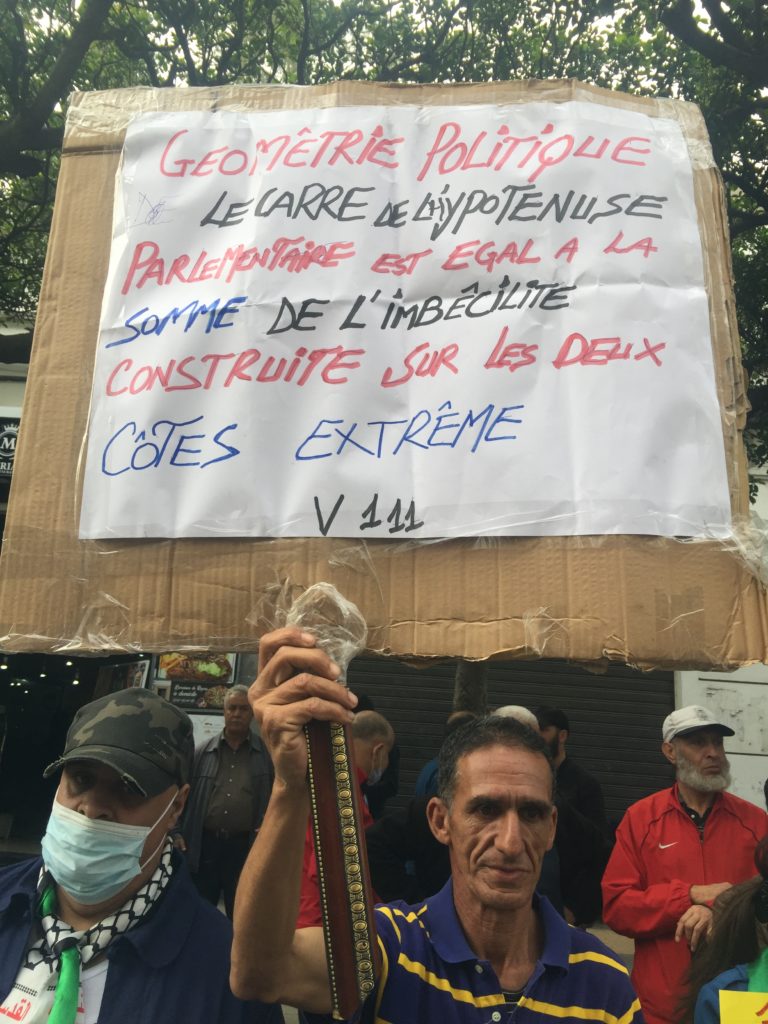 GEOMÊTRIE POLITIQUE
LE CARRE DE L'HYPOTENUSE
PARLEMENTAIRE EST EGAL A LA
SOMME DE L'IMBÊCILITE
CONSTRUITE SUR LES DEUX
CÔTES EXTRÊME
V 111
M
القدس